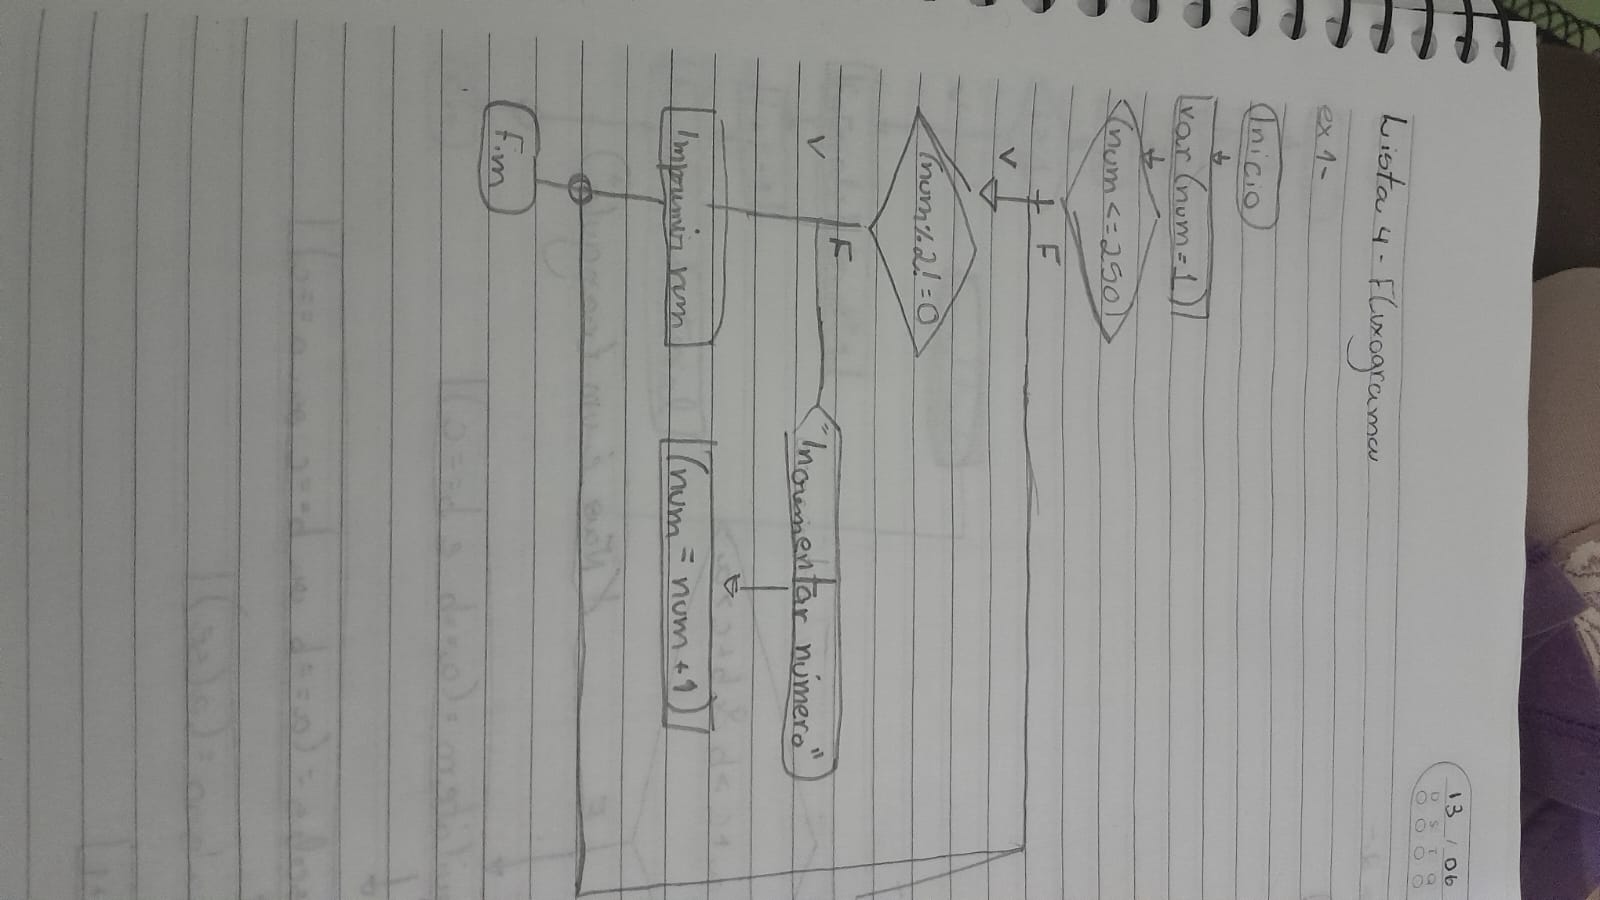 13 / 06
D S T Q
Lista 4 - Fluxograma
ex 1-
Início
var (num = 1)
(num <= 250)
F
V
(num % 2! = 0
F
V
"Incrementar número"
Imprimir num
(num = num + 1)
Fim